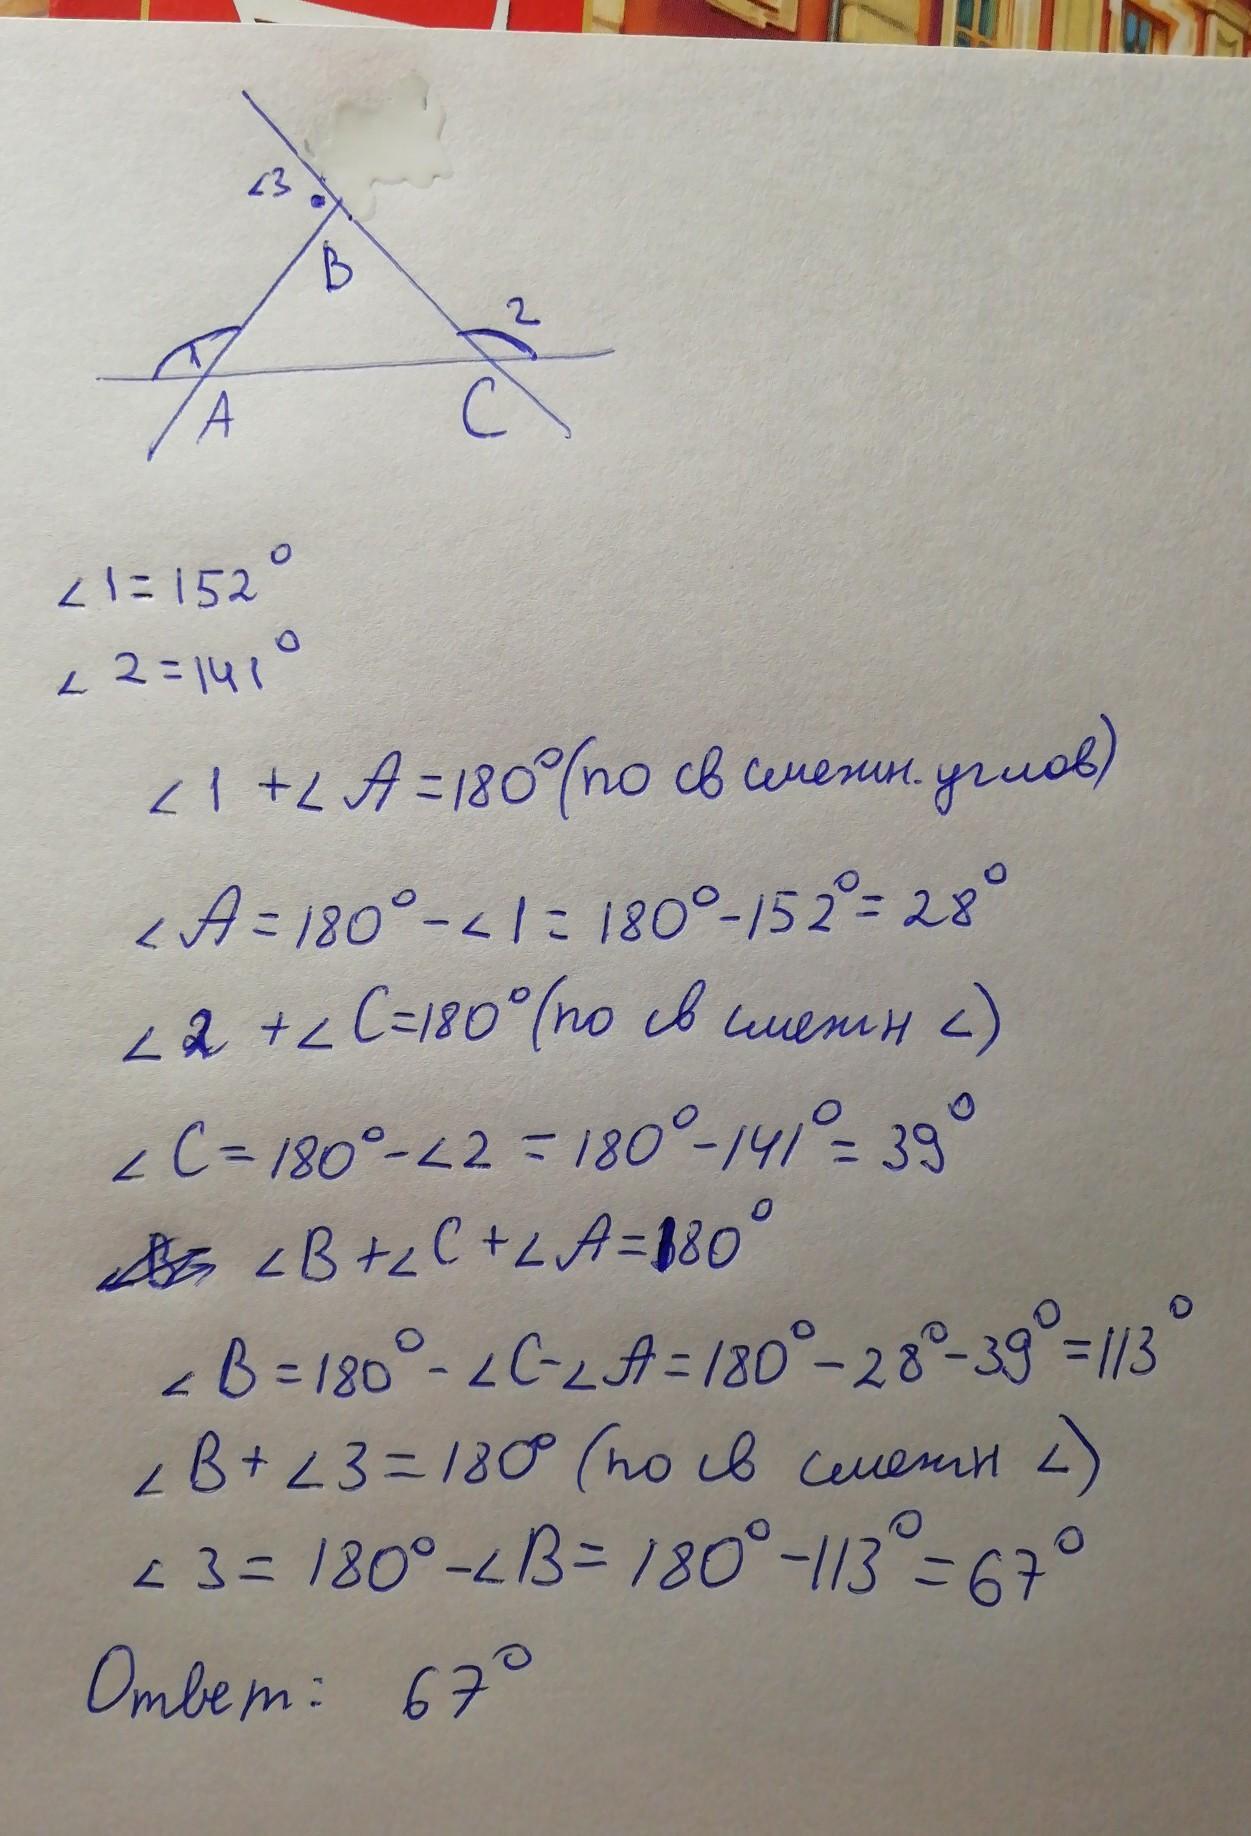 ∠3
B
1
2
A
C
∠1=152°
∠2=141°
∠1+∠A=180° (по св смежн. углов)
∠A=180°-∠1=180°-152°=28°
∠2+∠C=180° (по св смежн ∠)
∠C=180°-∠2=180°-141°=39°
∠B+∠C+∠A=180°
∠B=180°-∠C-∠A=180°-28°-39°=113°
∠B+∠3=180° (по св смежн ∠)
∠3=180°-∠B=180°-113°=67°
Ответ: 67°